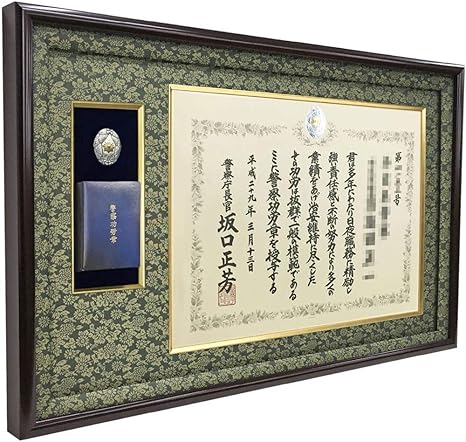 第
号
君は多年にわたり日夜職務に精励し
強い責任感と不断の努力により多くの
業績をあげ治安維持に尽くした
その功労は抜群で一般の模範である
ここに警察功労章を授与する
平成二十九年三月十三日
警察庁長官 坂口正芳
警察功労章